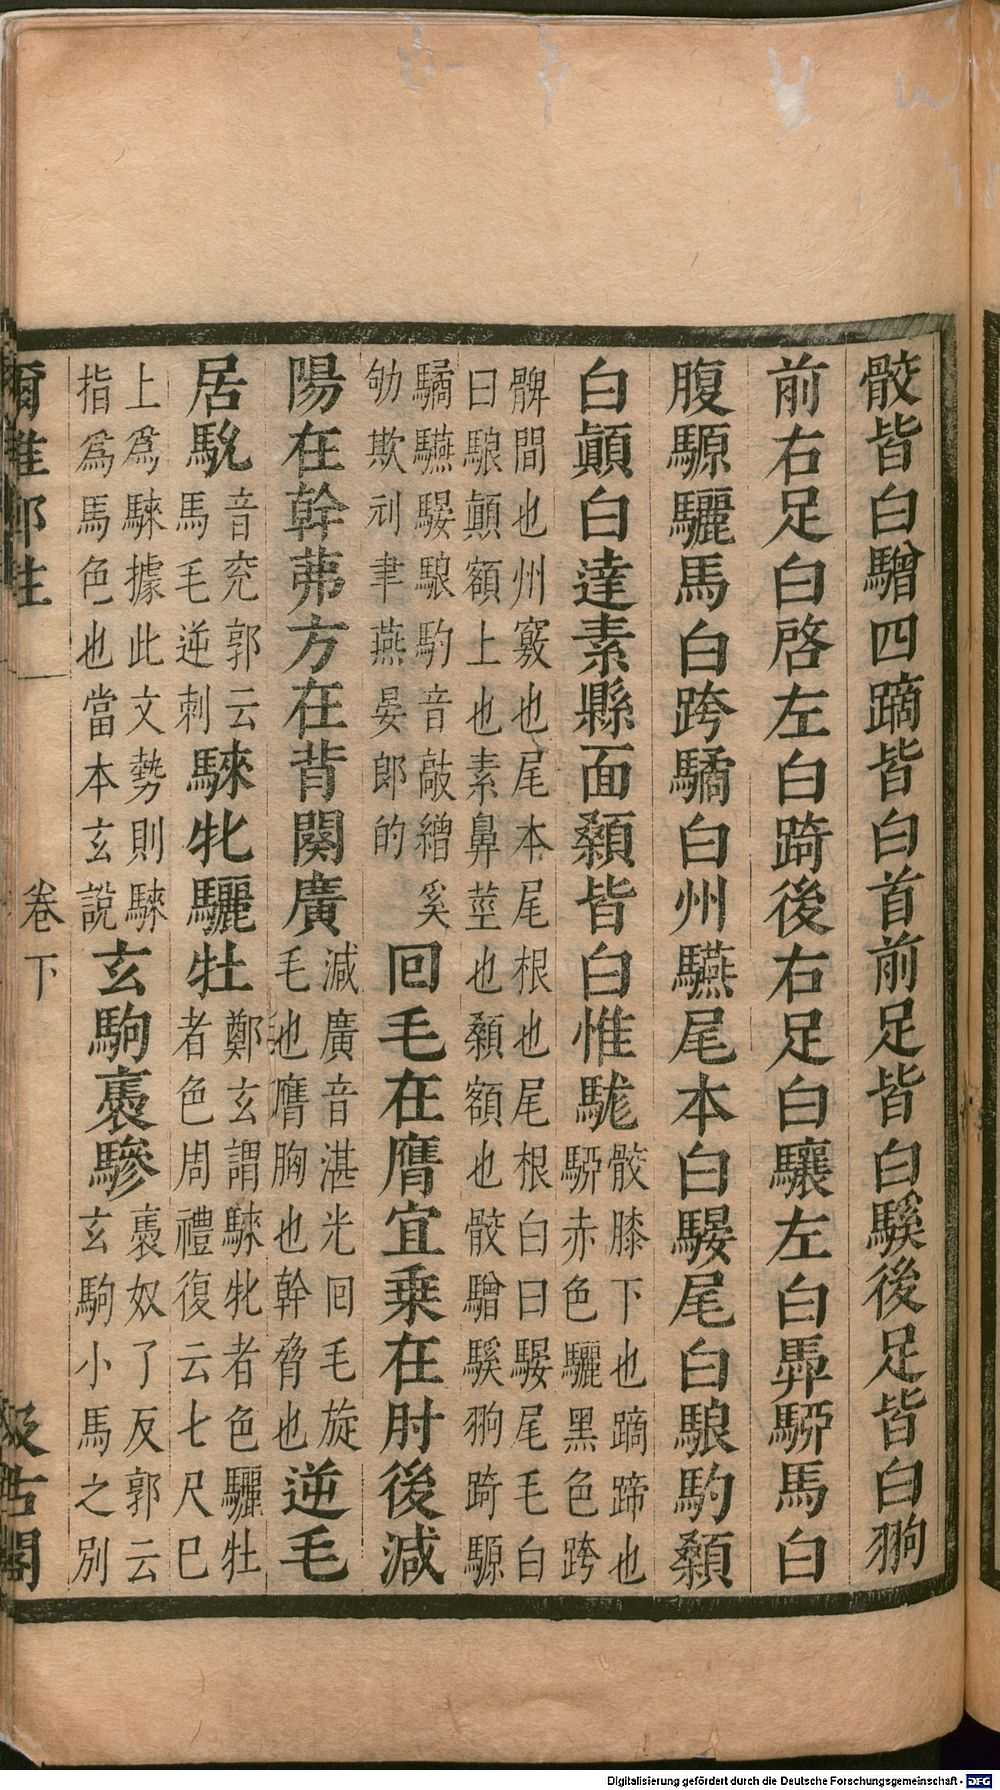 骹皆白驓四蹢皆白首前足皆白騱後足皆白翑
前右足白啓左白踦後右足白驤左白馵駵馬白
腹騵驪馬白跨驈白州驠尾本白騴尾白駺馰顙
白顚白達素縣面顙皆白惟駹骹膝下也蹢蹄也
駵赤色驪黑色跨
髀間也州竅也尾本尾根也尾根白曰騴尾毛白
曰駺顚額上也素鼻莖也顙額也骹驓騱翑踦騵
驈驠騴駺馰音敲繒奚
劬欺刓聿燕晏郎的回毛在膺宜乗在肘後減
陽在幹茀方在背闋廣減廣音湛光回毛旋
毛也膺胸也幹脅也逆毛
居馻音兖郭云
馬毛逆刺騋牝驪牡鄭玄謂騋牝者色驪牡
者色周禮復云七尺巳
上爲騋據此文勢則騋
指爲馬色也當本玄說玄駒褭驂褭奴了反郭云
玄駒小馬之別
爾雅郑注 卷下 汲古閣
Digitalisierung gefördert durch die Deutsche Forschungsgemeinschaft - DFG